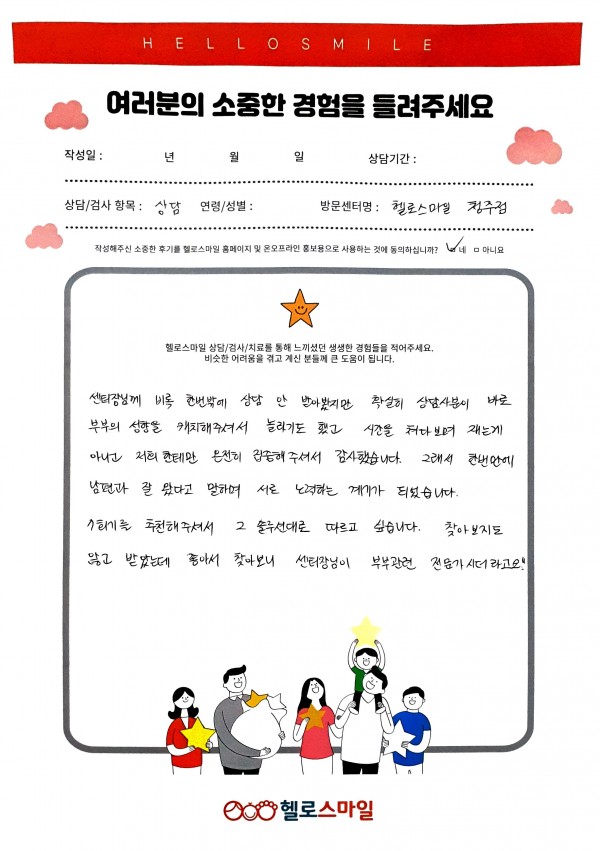 HELLOSMILE
여러분의 소중한 경험을 들려주세요
작성일 : 년 월 일 상담기간 :
상담/검사 항목 : 상담 연령/성별 : 방문센터명 : 헬로스마일 청주점
작성해주신 소중한 후기를 헬로스마일 홈페이지 및 온오프라인 홍보용으로 사용하는 것에 동의하십니까? ☑ 네 □ 아니요
헬로스마일 상담/검사/치료를 통해 느끼셨던 생생한 경험들을 적어주세요.
비슷한 어려움을 겪고 계신 분들께 큰 도움이 됩니다.
센터장님께 비록 한번밖에 상담 안 받아봤지만 확실히 상담사분이 바로
부부의 성향을 캐치해주셔서 놀라기도 했고 시간을 쳐다보며 재는게
아니고 저희한테만 온전히 집중해주셔서 감사했습니다. 그래서 한번만에
남편과 잘 왔다고 말하며 서로 노력하는 계기가 되었습니다.
추천해주셔서 그 솔루션대로 따르고 싶습니다. 찾아보지도
않고 받았는데 좋아서 찾아보니 센터장님이 부부관련 전문가시더라고요!!
헬로스마일